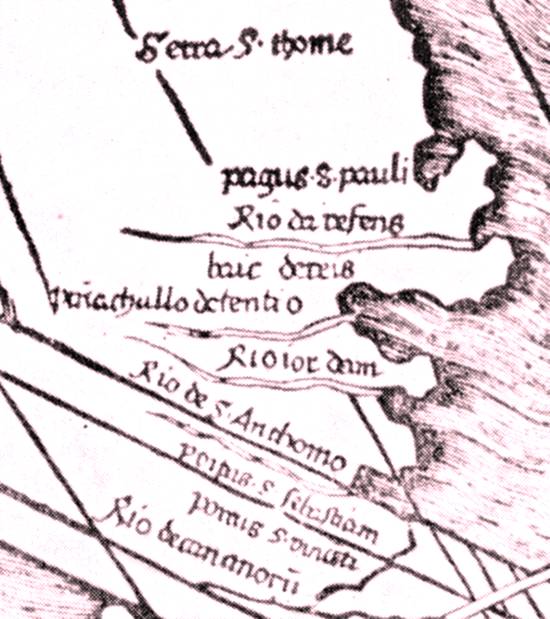 Serra S. thome
pagus. S. pauli
Rio da refens
baie dereis
pinachullo detentio
Rio ior dam
Rio de S. Anthomo
portus. S sebastiam
portus S. vincenti
Rio decananorū